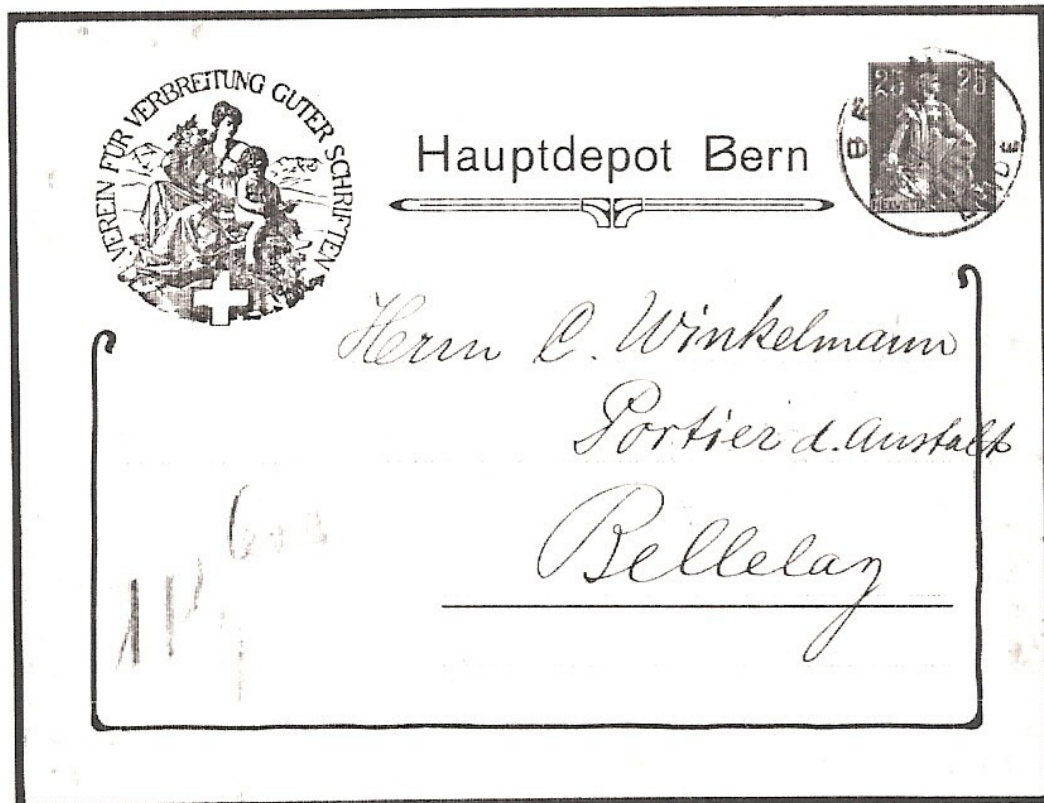 VEREIN FÜR VERBREITUNG GUTER SCHRIFTEN
Hauptdepot Bern
25 25
HELVETIA
Herrn C. Winkelmann
Portier d. Anstalt
Bellelay